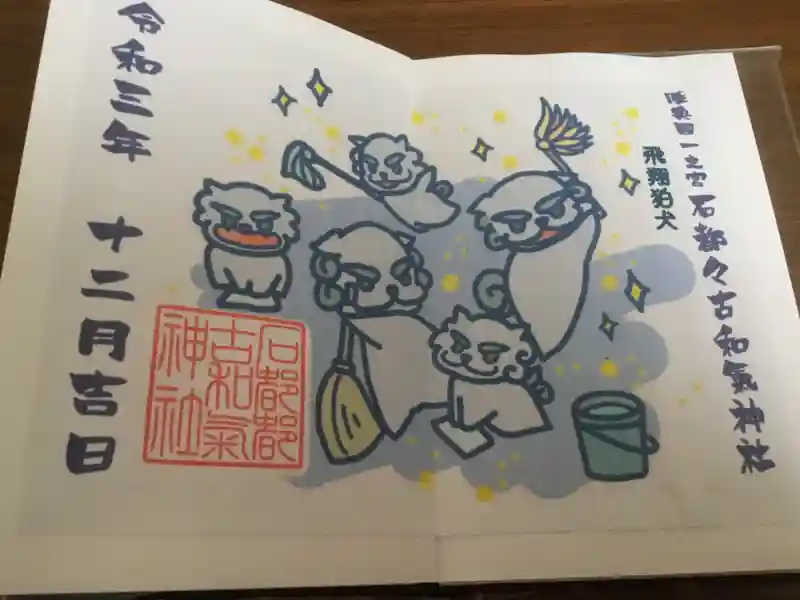 陸奥国一之宮石都々古和氣神社
飛翔狛犬
石都都
古和氣
神社
令和三年 十二月吉日